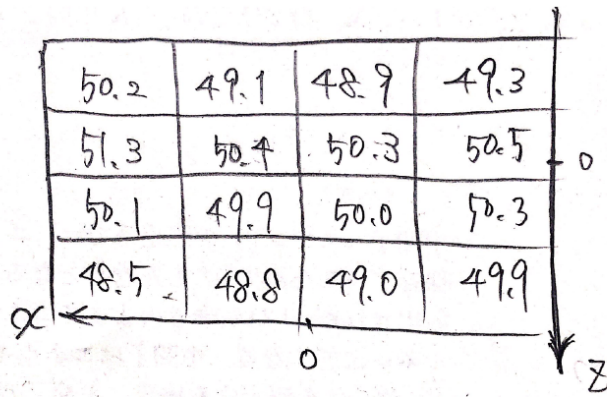 50.2 49.1 48.9 49.3
51.3 50.4 50.3 50.5 0
50.1 49.9 50.0 50.3
48.5 48.8 49.0 49.9
x 0 z